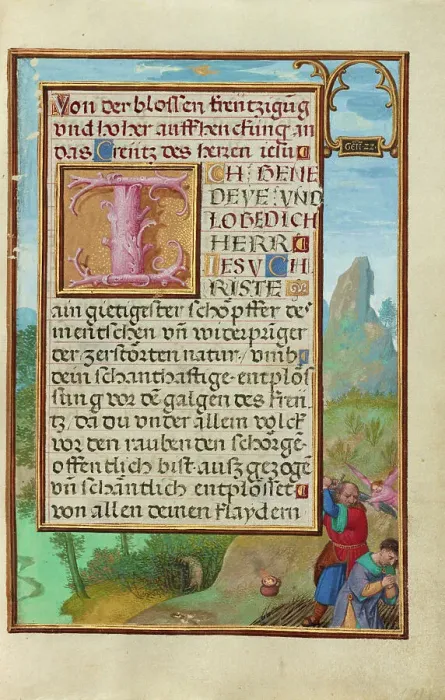 Von der blossen kreutzigūg
vnd hoher auffhenckūng an
das Creütz des herren iesu
ICH BENE
DEYE VND
LOBE DICH
HERR
IESV CH
RISTE
Gen̄ 22
ain gietigister schöpffer des
mentschen vn̄ widerprīger
der zerstörten natur, vmb
dein schanthaftige entplös
sung vor dē galgen des kreü
tz, da du vnder allem volck
vor den raubenden schörge
offentlich bist auszgezogē
vn̄ schantlich entplösset
von allen deinen klaydern